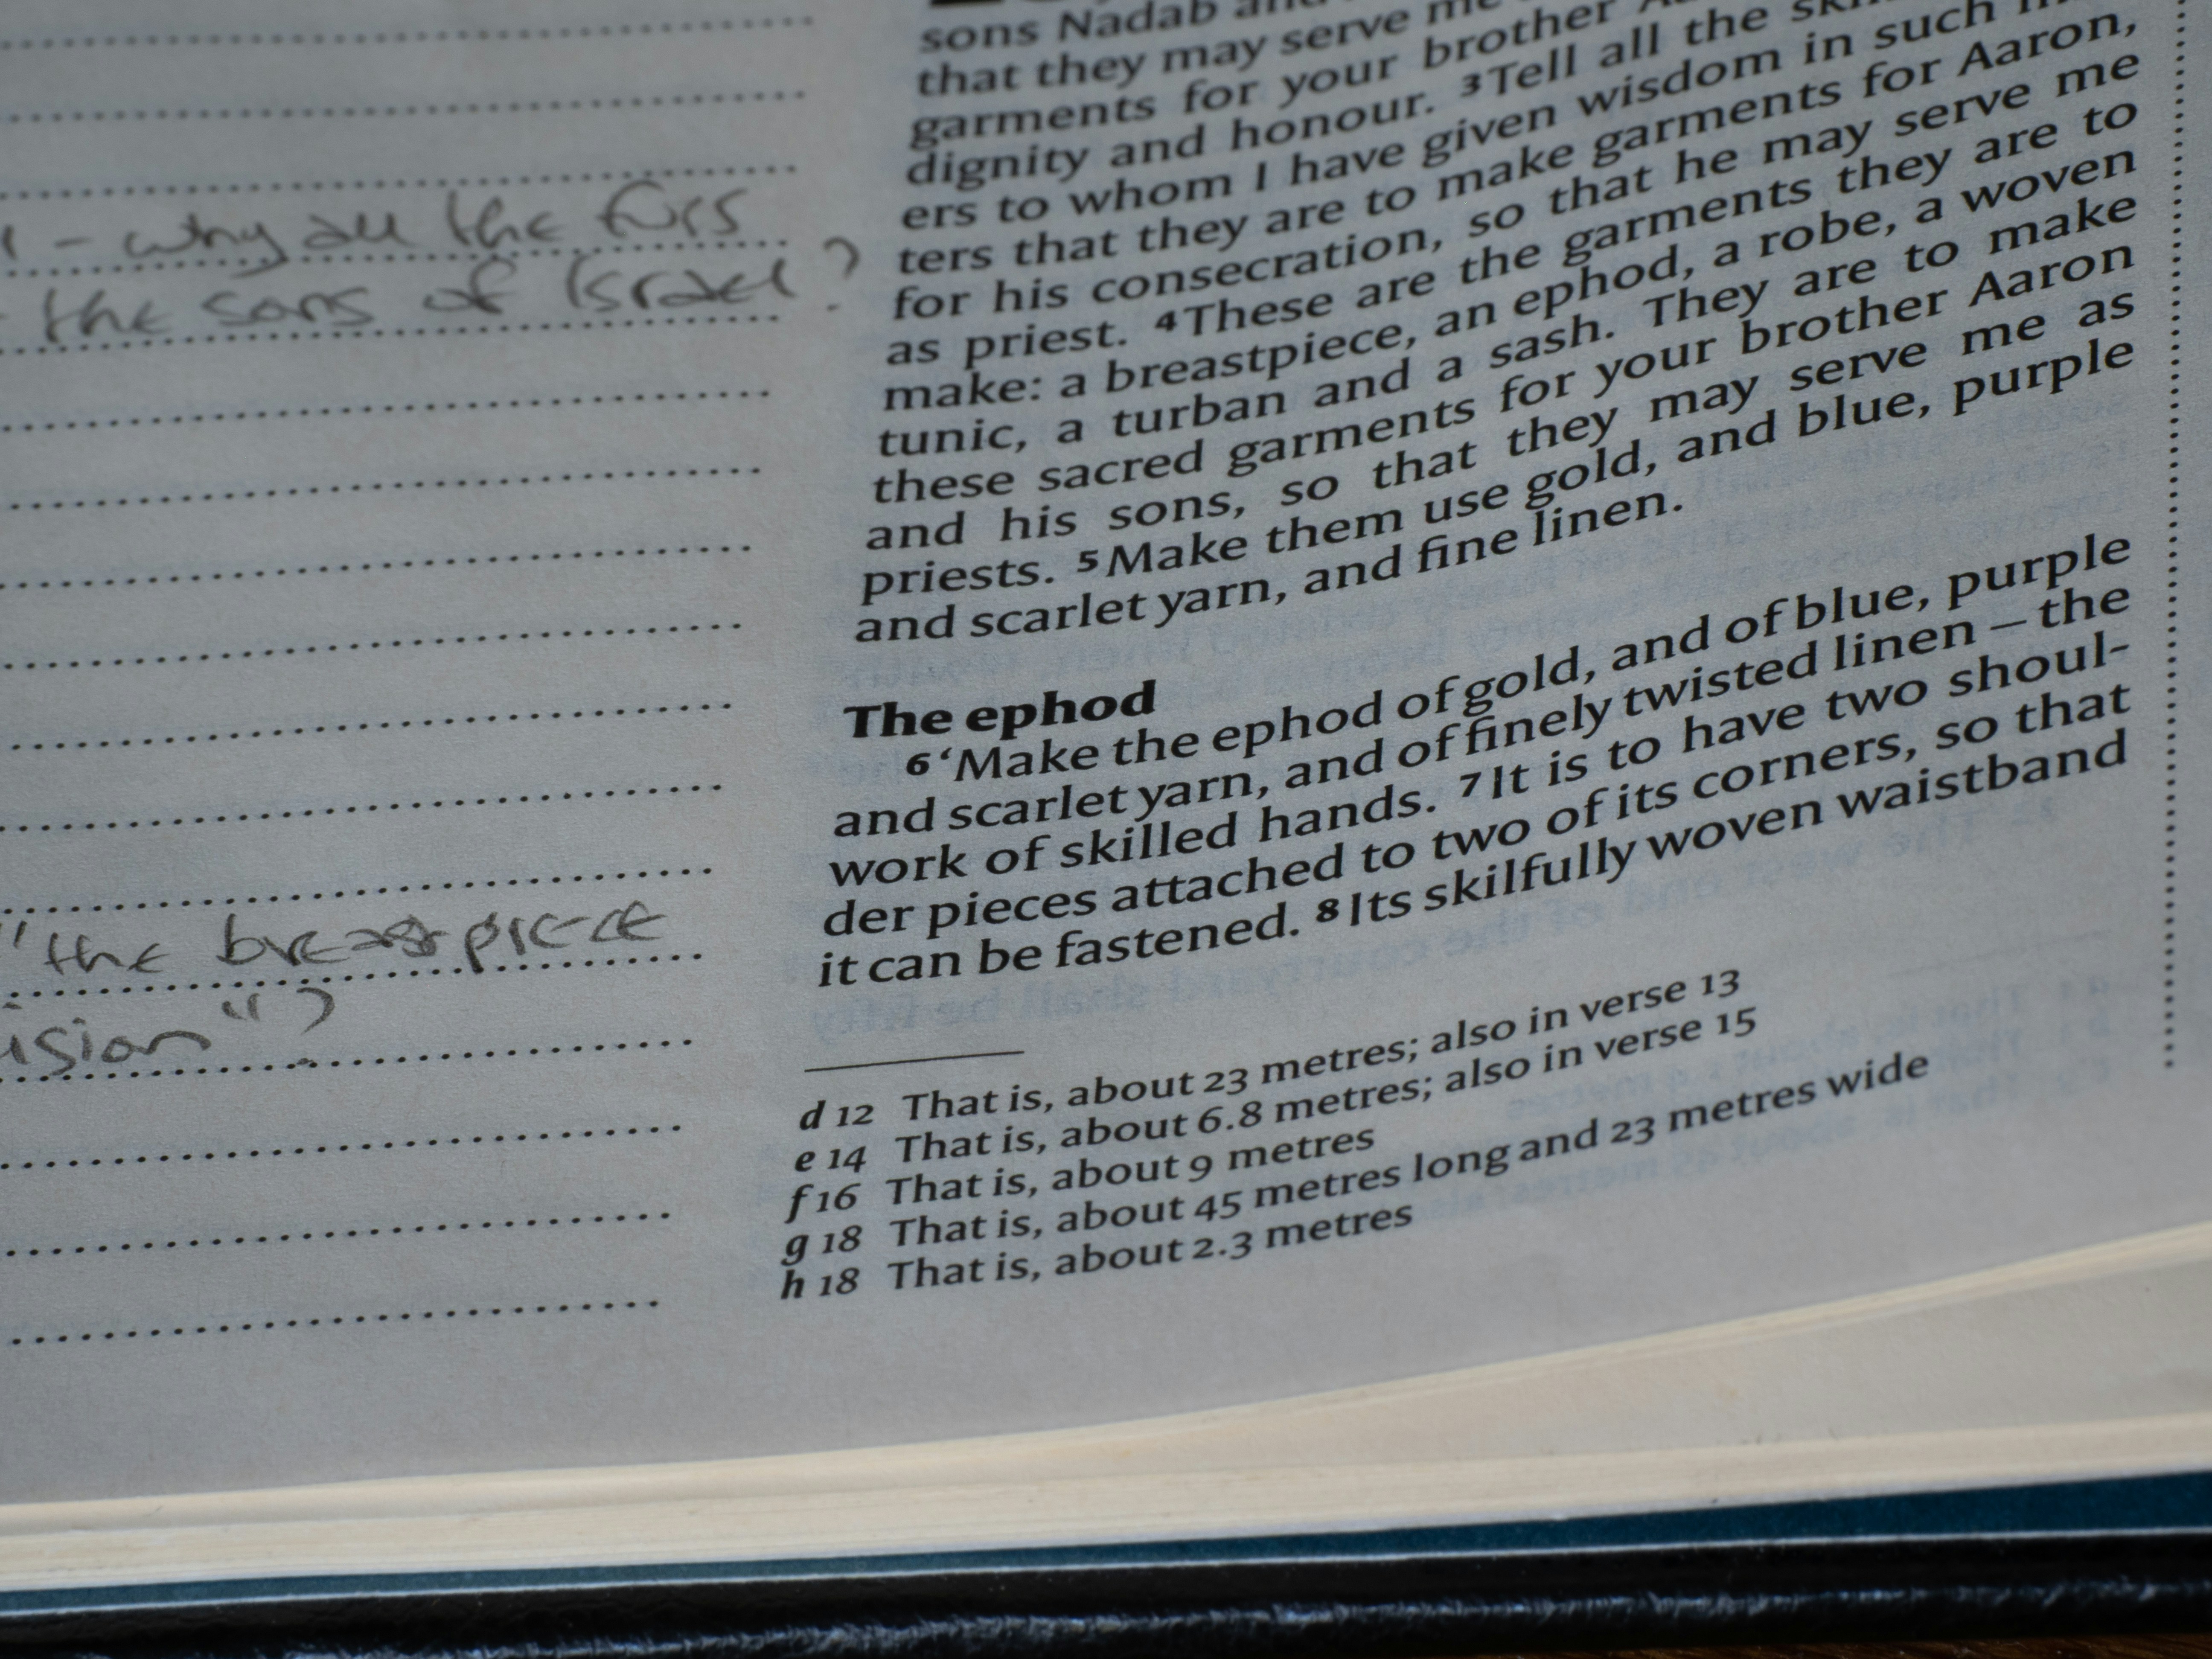 - why all the furs
the sons of Israel?
"the breastpiece
ision"?
sons Nadab and
that they may serve me
garments for your brother
dignity and honour. 3Tell all the
ers to whom I have given wisdom in such
ters that they are to make garments for Aaron,
for his consecration, so that he may serve me
as priest. 4These are the garments they are to
make: a breastpiece, an ephod, a robe, a woven
tunic, a turban and a sash. They are to make
these sacred garments for your brother Aaron
and his sons, so that they may serve me as
priests. 5Make them use gold, and blue, purple
and scarlet yarn, and fine linen.
The ephod
6‘Make the ephod of gold, and of blue, purple
and scarlet yarn, and of finely twisted linen – the
work of skilled hands. 7It is to have two shoul-
der pieces attached to two of its corners, so that
it can be fastened. 8Its skilfully woven waistband
d 12 That is, about 23 metres; also in verse 13
e 14 That is, about 6.8 metres; also in verse 15
f 16 That is, about 9 metres
g 18 That is, about 45 metres long and 23 metres wide
h 18 That is, about 2.3 metres